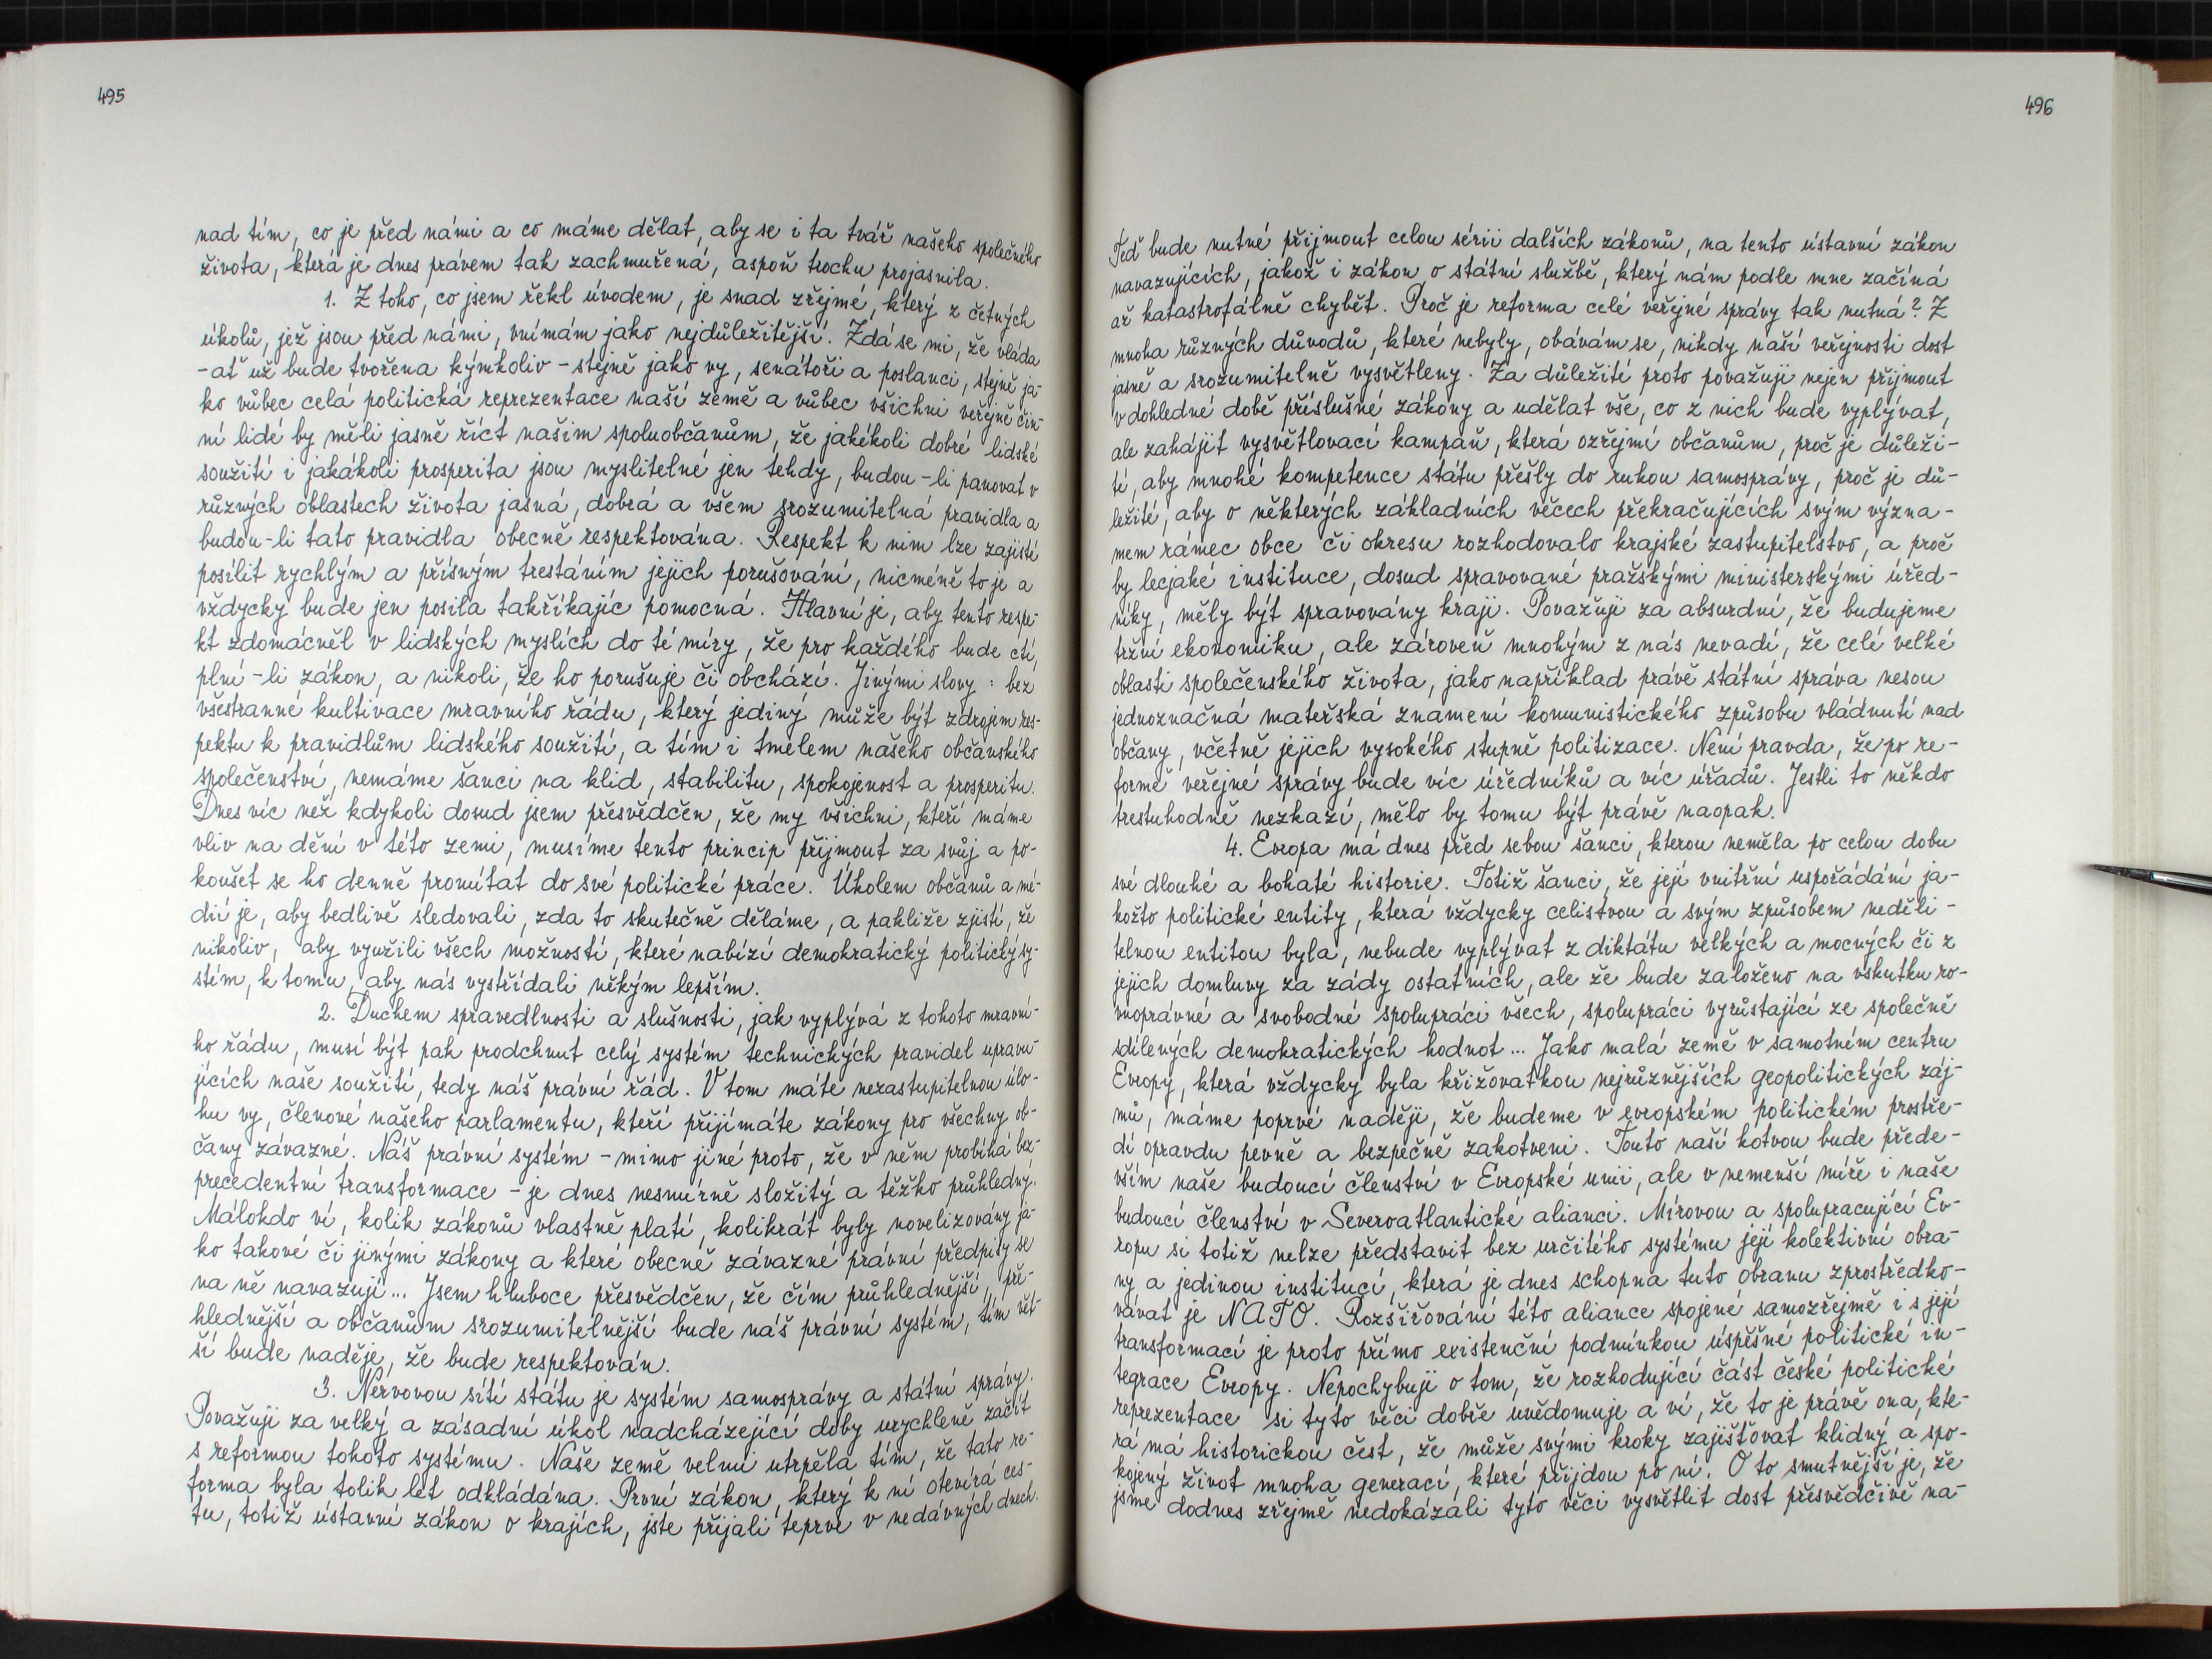 495
nad tím, co je před námi a co máme dělat, aby se i ta tvář našeho společného
života, která je dnes právem tak zachmuřená, aspoň trochu projasnila.
1. Z toho, co jsem řekl úvodem, je snad zřejmé, který z četných
úkolů, jež jsou před námi, vnímám jako nejdůležitější. Zdá se mi, že vláda
- ať už bude tvořena kýmkoliv - stejně jako vy, senátoři a poslanci, stejně ja-
ko vůbec celá politická reprezentace naší země a vůbec všichni veřejně čin-
ní lidé by měli jasně říct našim spoluobčanům, že jakékoli dobré lidské
soužití i jakákoli prosperita jsou myslitelné jen tehdy, budou-li panovat v
různých oblastech života jasná, dobrá a všem srozumitelná pravidla a
budou-li tato pravidla obecně respektována. Respekt k nim lze zajisté
posílit rychlým a přísným trestáním jejich porušování, nicméně to je a
vždycky bude jen posila takříkajíc pomocná. Hlavní je, aby tento respe-
kt zdomácněl v lidských myslích do té míry, že pro každého bude ctí,
plní-li zákon, a nikoli, že ho porušuje či obchází. Jinými slovy: bez
všestranné kultivace mravního řádu, který jediný může být zdrojem res-
pektu k pravidlům lidského soužití, a tím i tmelem našeho občanského
společenství, nemáme šanci na klid, stabilitu, spokojenost a prosperitu.
Dnes víc než kdykoli dosud jsem přesvědčen, že my všichni, kteří máme
vliv na dění v této zemi, musíme tento princip přijmout za svůj a po-
koušet se ho denně promítat do své politické práce. Úkolem občanů a mé-
dií je, aby bedlivě sledovali, zda to skutečně děláme, a pakliže zjistí, že
nikoliv, aby využili všech možností, které nabízí demokratický politický sy-
stém, k tomu, aby nás vystřídali někým lepším.
2. Duchem spravedlnosti a slušnosti, jak vyplývá z tohoto mravní-
ho řádu, musí být pak prodchnut celý systém technických pravidel upravu-
jících naše soužití, tedy náš právní řád. V tom máte nezastupitelnou úlo-
hu vy, členové našeho parlamentu, kteří přijímáte zákony pro všechny ob-
čany závazné. Náš právní systém - mimo jiné proto, že v něm probíhá bez-
precedentní transformace - je dnes nesmírně složitý a těžko průhledný.
Málokdo ví, kolik zákonů vlastně platí, kolikrát byly novelizovány ja-
ko takové či jinými zákony a které obecně závazné právní předpisy se
na ně navazují... Jsem hluboce přesvědčen, že čím průhlednější, pře-
hlednější a občanům srozumitelnější bude náš právní systém, tím vět-
ší bude naděje, že bude respektován.
3. Nervovou sítí státu je systém samosprávy a státní správy.
Považuji za velký a zásadní úkol nadcházející doby urychleně začít
s reformou tohoto systému. Naše země velmi utrpěla tím, že tato re-
forma byla tolik let odkládána. První zákon, který k ní otevírá ces-
tu, totiž ústavní zákon o krajích, jste přijali teprve v nedávných dnech.
496
Teď bude nutné přijmout celou sérii dalších zákonů, na tento ústavní zákon
navazujících, jakož i zákon o státní službě, který nám podle mne začíná
až katastrofálně chybět. Proč je reforma celé veřejné správy tak nutná? Z
mnoha různých důvodů, které nebyly, obávám se, nikdy naší veřejnosti dost
jasně a srozumitelně vysvětleny. Za důležité proto považuji nejen přijmout
v dohledné době příslušné zákony a udělat vše, co z nich bude vyplývat,
ale zahájit vysvětlovací kampaň, která ozřejmí občanům, proč je důleži-
té, aby mnohé kompetence státu přešly do rukou samosprávy, proč je dů-
ležité, aby o některých základních věcech překračujících svým význa-
mem rámec obce či okresu rozhodovalo krajské zastupitelstvo, a proč
by lecjaké instituce, dosud spravované pražskými ministerskými úřed-
níky, měly být spravovány kraji. Považuji za absurdní, že budujeme
tržní ekonomiku, ale zároveň mnohým z nás nevadí, že celé velké
oblasti společenského života, jako například právě státní správa nesou
jednoznačná mateřská znamení komunistického způsobu vládnutí nad
občany, včetně jejich vysokého stupně politizace. Není pravda, že po re-
formě veřejné správy bude víc úředníků a víc úřadů. Jestli to někdo
trestuhodně nezkazí, mělo by tomu být právě naopak.
4. Evropa má dnes před sebou šanci, kterou neměla po celou dobu
své dlouhé a bohaté historie. Totiž šanci, že její vnitřní uspořádání ja-
kožto politické entity, která vždycky celistvou a svým způsobem neděli-
telnou entitou byla, nebude vyplývat z diktátu velkých a mocných či z
jejich domluvy za zády ostatních, ale že bude založeno na vskutku ro-
vnoprávné a svobodné spolupráci všech, spolupráci vyrůstající ze společně
sdílených demokratických hodnot... Jako malá země v samotném centru
Evropy, která vždycky byla křižovatkou nejrůznějších geopolitických záj-
mů, máme poprvé naději, že budeme v evropském politickém prostře-
dí opravdu pevně a bezpečně zakotveni. Touto naší kotvou bude přede-
vším naše budoucí členství v Evropské unii, ale v nemenší míře i naše
budoucí členství v Severoatlantické alianci. Mírovou a spolupracující Ev-
ropu si totiž nelze představit bez určitého systému její kolektivní obra-
ny a jedinou institucí, která je dnes schopna tuto obranu zprostředko-
vávat je NATO. Rozšiřování této aliance spojené samozřejmě i s její
transformací je proto přímo existenční podmínkou úspěšné politické in-
tegrace Evropy. Nepochybuji o tom, že rozhodující část české politické
reprezentace si tyto věci dobře uvědomuje a ví, že to je právě ona, kte-
rá má historickou čest, že může svými kroky zajišťovat klidný a spo-
kojený život mnoha generací, které přijdou po ní. O to smutnější je, že
jsme dodnes zřejmě nedokázali tyto věci vysvětlit dost přesvědčivě na-